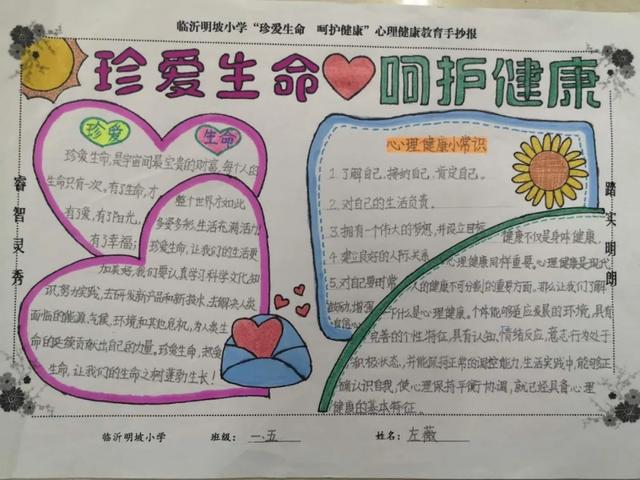 临沂明坡小学“珍爱生命 呵护健康”心理健康教育手抄报
珍爱生命 呵护健康
睿智灵秀
踏实明朗
珍爱 生命
珍爱生命,是宇宙间最宝贵的财富,每个人的
生命只有一次,有了生命,才 整个世界亦如此
有了爱,有了阳光, 多姿多彩,生活充满活力
有了幸福;珍爱生命,让我们的生活更
加美好,我们要认真学习科学文化知
识,努力实践,去研发新产品和新技术,去解决人类
面临的能源,气候,环境和其他危机,为人类生
命的延续贡献出自己的力量。珍爱生命,热爱
生命,让我们的生命之树蓬勃生长!
心理健康小常识
1.了解自己,接纳自己,肯定自己。
2.对自己的生活负责。
3.拥有一个伟大的梦想,并设立目标
4.建立良好的人际关系
5.对自己要时常
激励,增强
自信心
健康不仅是身体健康,
心理健康同样重要。心理健康是现代
人的健康不可分割的重要方面,那么让我们了解
下什么是心理健康。个体能够适应发展的环境,具有
完善的个性特征,具有认知,情绪反应,意志行为处于
积极状态,并能保持正常的调整能力,生活实践中,能够正
确认识自我,使心理保持平衡协调,就已经具备心理
健康的基本特征。
临沂明坡小学 班级:一.五 姓名:左薇